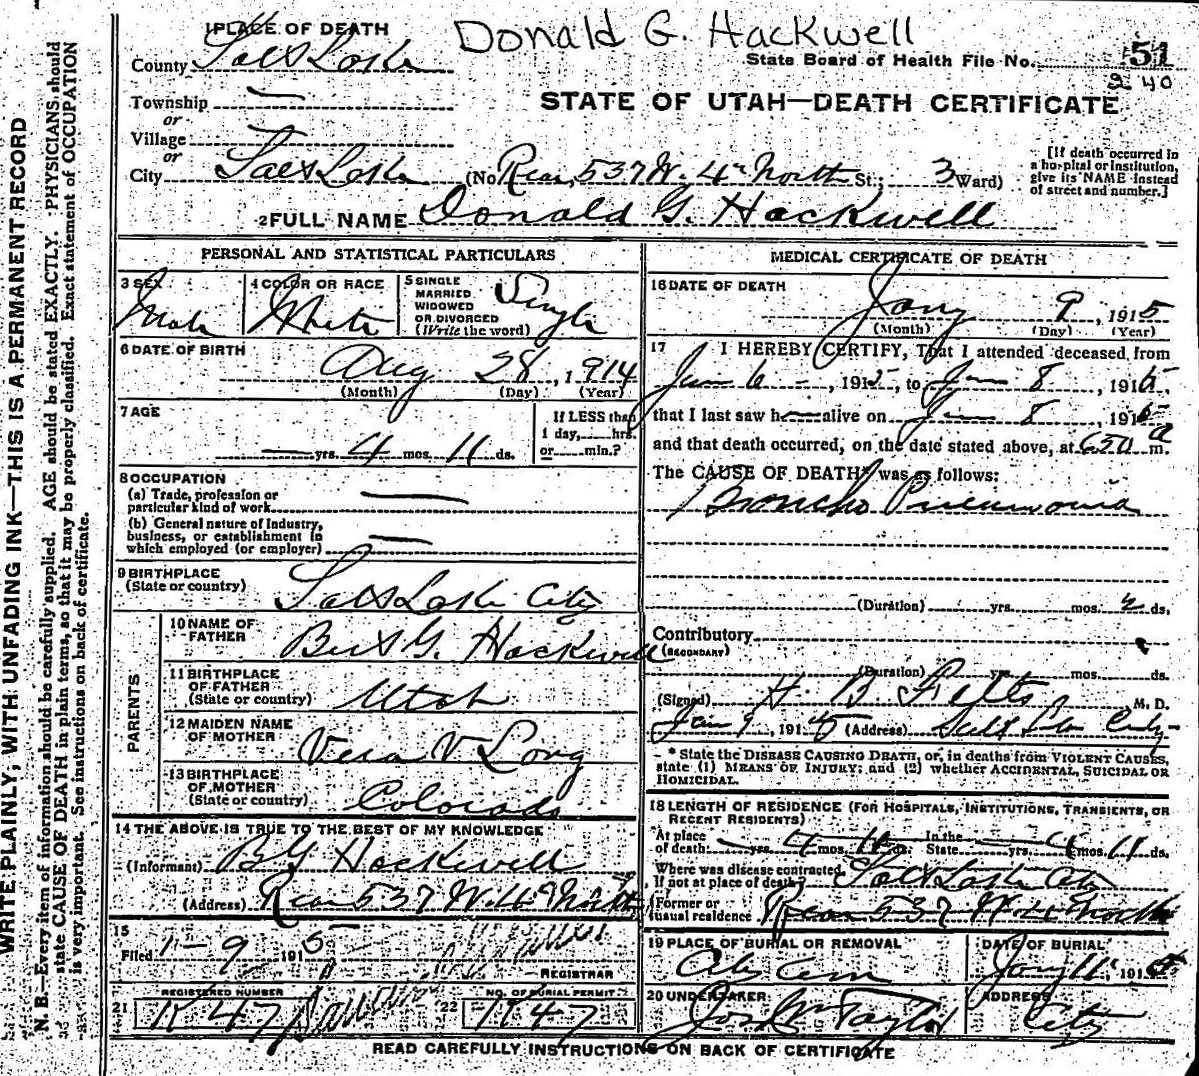 Donald G. Hackwell
State Board of Health File No. 51
240
STATE OF UTAH—DEATH CERTIFICATE
1 PLACE OF DEATH
County Salt Lake
Township —
or
Village
or
City Salt Lake (No. Rear 537 W. 4th North St.; 3 Ward)
[If death occurred in
a hospital or institution,
give its NAME instead
of street and number.]
2 FULL NAME Donald G. Hackwell
PERSONAL AND STATISTICAL PARTICULARS
3 SEX Male
4 COLOR OR RACE White
5 SINGLE
MARRIED
WIDOWED
OR DIVORCED
(Write the word) Single
6 DATE OF BIRTH
Aug 28, 1914
(Month) (Day) (Year)
7 AGE
— yrs. 4 mos. 11 ds.
If LESS than
1 day, hrs.
or min.?
8 OCCUPATION
(a) Trade, profession or
particular kind of work —
(b) General nature of Industry,
business, or establishment in
which employed (or employer) —
9 BIRTHPLACE
(State or country) Salt Lake City
PARENTS
10 NAME OF
FATHER Bert G. Hackwell
11 BIRTHPLACE
OF FATHER
(State or country) Utah
12 MAIDEN NAME
OF MOTHER Vera V Long
13 BIRTHPLACE
OF MOTHER
(State or country) Colorado
14 THE ABOVE IS TRUE TO THE BEST OF MY KNOWLEDGE
(Informant) B G Hackwell
(Address) Rear 537 W. 4th North
15
Filed 1-9 1915
REGISTRAR
21 REGISTERED NUMBER K 47
22 NO. OF BURIAL PERMIT K 47
MEDICAL CERTIFICATE OF DEATH
16 DATE OF DEATH
Jany 9, 1915
(Month) (Day) (Year)
17 I HEREBY CERTIFY, That I attended deceased from
Jan 6 —, 1915, to Jan 8, 1915
that I last saw h— alive on Jan 8 1915
and that death occurred, on the date stated above, at 6 50 a m.
The CAUSE OF DEATH* was as follows:
Broncho Pneumonia
(Duration) yrs. mos. ds.
Contributory
(SECONDARY)
(Duration) yrs. mos. ds.
(Signed) H. B. Felts M. D.
Jan 9 1915 (Address) Salt Lake City
* State the DISEASE CAUSING DEATH, or, in deaths from VIOLENT CAUSES,
state (1) MEANS OF INJURY; and (2) whether ACCIDENTAL, SUICIDAL OR
HOMICIDAL.
18 LENGTH OF RESIDENCE (FOR HOSPITALS, INSTITUTIONS, TRANSIENTS, OR
RECENT RESIDENTS)
At place
of death — yrs. 4 mos. 11 ds. In the
State — yrs. 4 mos. 11 ds.
Where was disease contracted,
If not at place of death? Salt Lake City
Former or
usual residence Rear 537 W. 4 North
19 PLACE OF BURIAL OR REMOVAL
City Cem
DATE OF BURIAL
Jany 11 1915
20 UNDERTAKER
Jos Wm Taylor
ADDRESS
City
READ CAREFULLY INSTRUCTIONS ON BACK OF CERTIFICATE
WRITE PLAINLY, WITH UNFADING INK—THIS IS A PERMANENT RECORD
N. B.—Every item of information should be carefully supplied. AGE should be stated EXACTLY. PHYSICIANS should
state CAUSE OF DEATH in plain terms, so that it may be properly classified. Exact statement of OCCUPATION
is very important. See instructions on back of certificate.